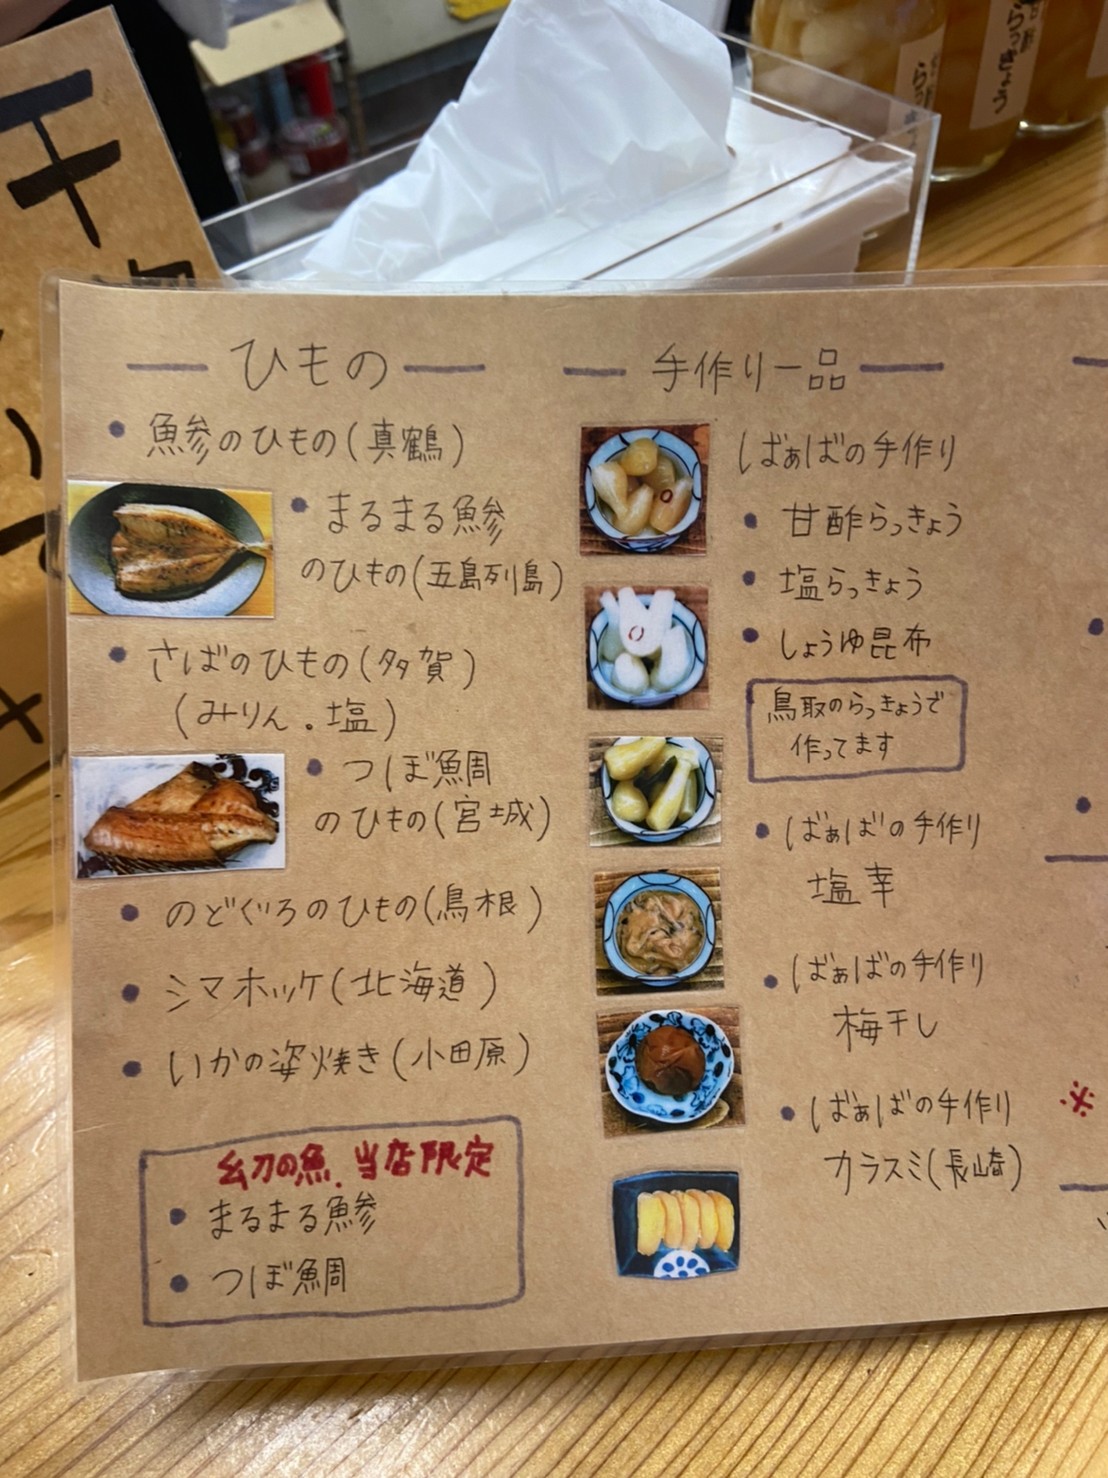 ひもの
・鯵のひもの(真鶴)
・まるまる鯵
のひもの(五島列島)
・さばのひもの(多賀)
(みりん.塩)
・つぼ鯛
のひもの(宮城)
・のどぐろのひもの(島根)
・シマホッケ(北海道)
・いかの姿焼き(小田原)
幻の魚.当店限定
・まるまる鯵
・つぼ鯛
手作り一品
ばぁばの手作り
・甘酢らっきょう
・塩らっきょう
・しょうゆ昆布
鳥取のらっきょうで
作ってます
・ばぁばの手作り
塩辛
・ばぁばの手作り
梅干し
・ばぁばの手作り
カラスミ(長崎)
※
らっきょう